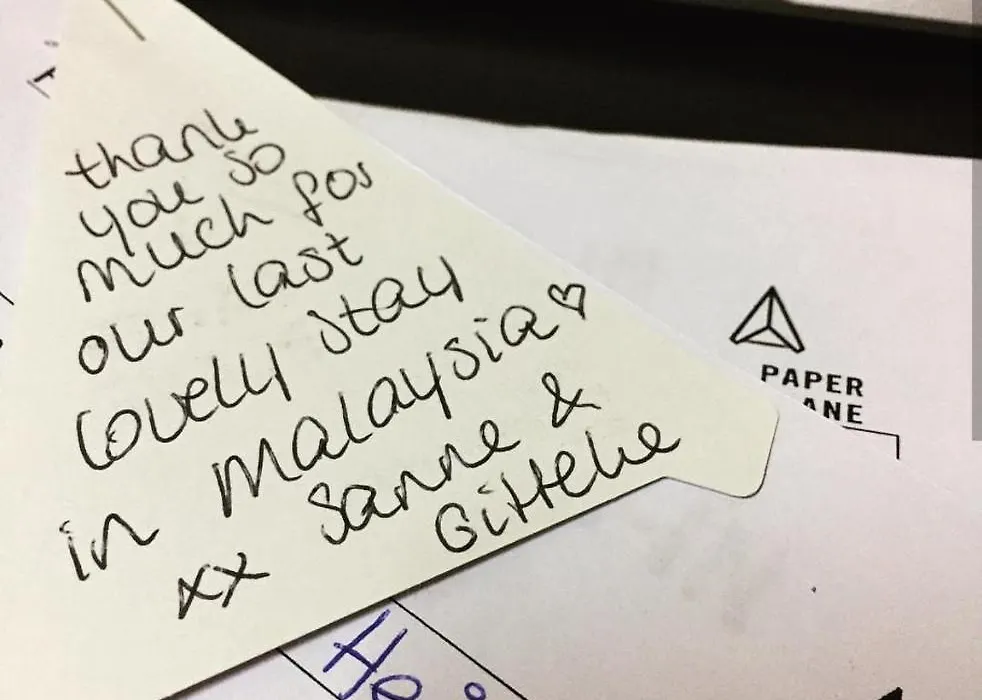 thank
you so
much for
our last
lovely stay
in Malaysia ♡
xx Sanne &
Gitteke
PAPER
ANE
He